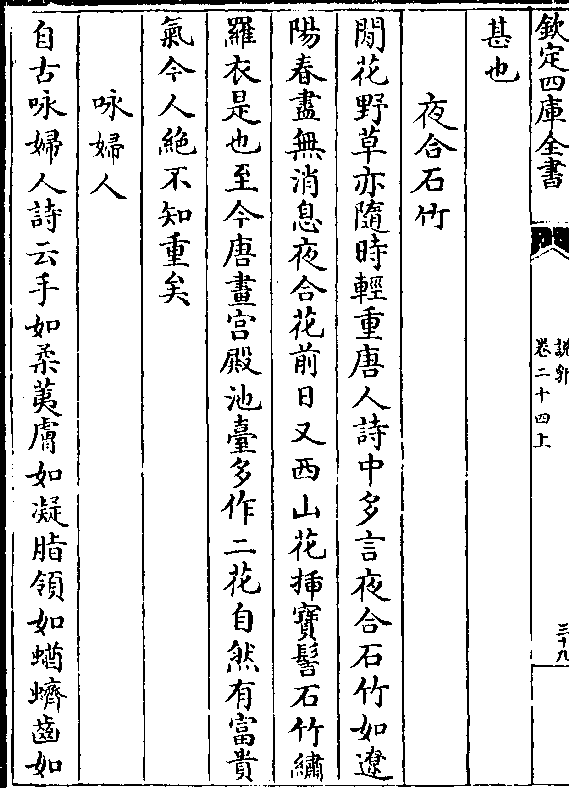 欽定四庫全書
說郛
卷二十四上
三十九
甚也
夜合石竹
閒花野草亦隨時輕重唐人詩中多言夜合石竹如遼
陽春盡無消息夜合花前日又西山花揷寶髻石竹繡
羅衣是也至今唐畫宫殿池臺多作二花自然有富貴
氣今人絶不知重矣
咏婦人
自古咏婦人詩云手如柔荑膚如凝脂領如蝤蠐齒如